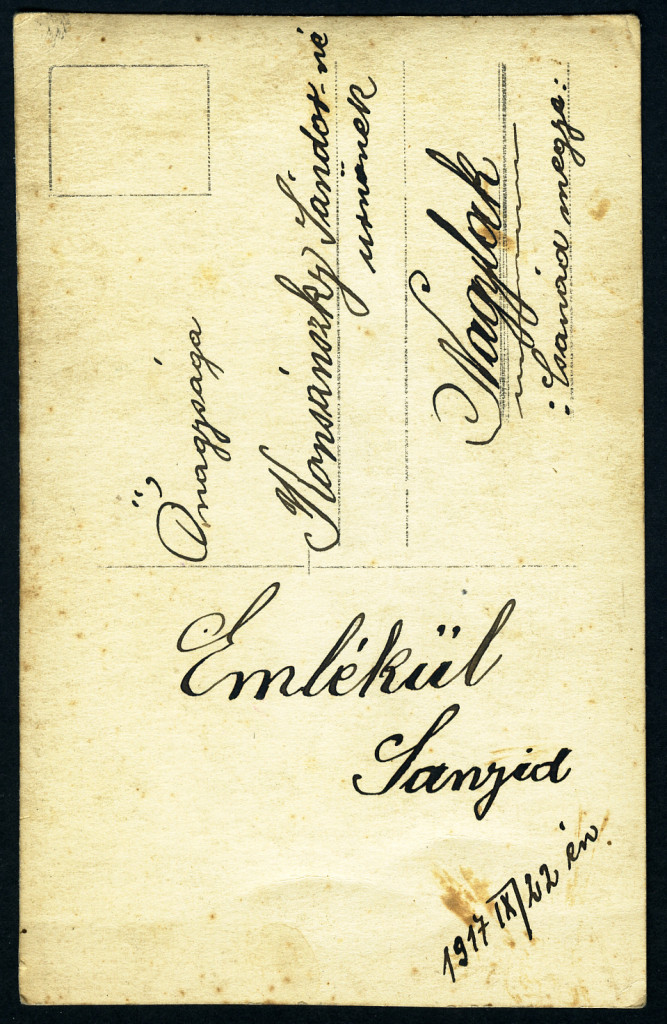 Őnagysága
Konsánszky Sándor-né
urnőnek
Nagylak
Csanád megye.
Emlékül
Sanyid
1917 IX/22 én